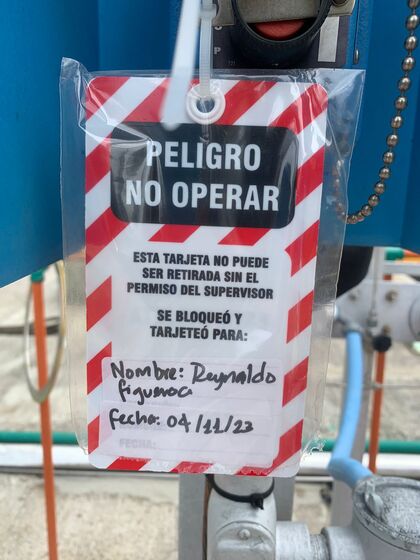 PELIGRO
NO OPERAR
ESTA TARJETA NO PUEDE
SER RETIRADA SIN EL
PERMISO DEL SUPERVISOR
SE BLOQUEÓ Y
TARJETEÓ PARA:
Nombre: Reynaldo
figueroa
fecha: 04/11/23
FECHA: